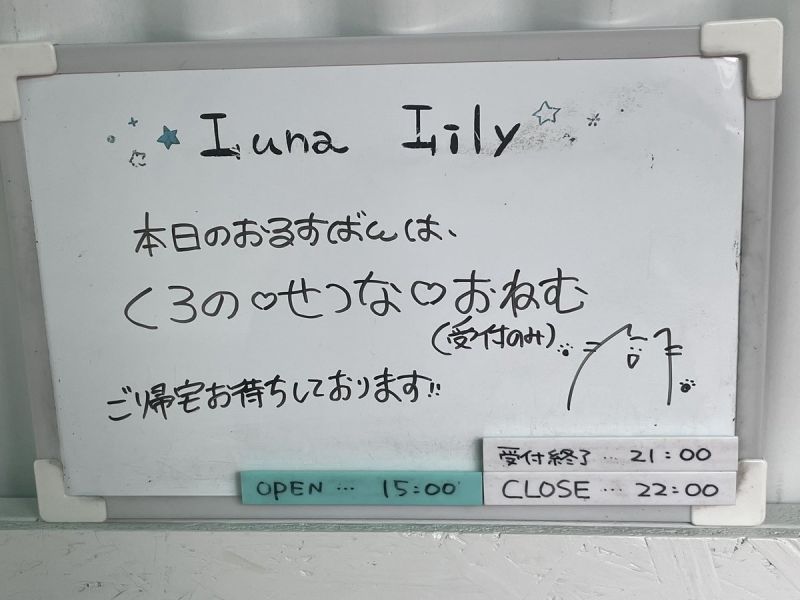 Luna Lily
本日のおるすばんは、
くろの♡せつな♡おねむ
(受付のみ)
ご帰宅お待ちしております!!
受付終了… 21:00
OPEN… 15:00
CLOSE… 22:00